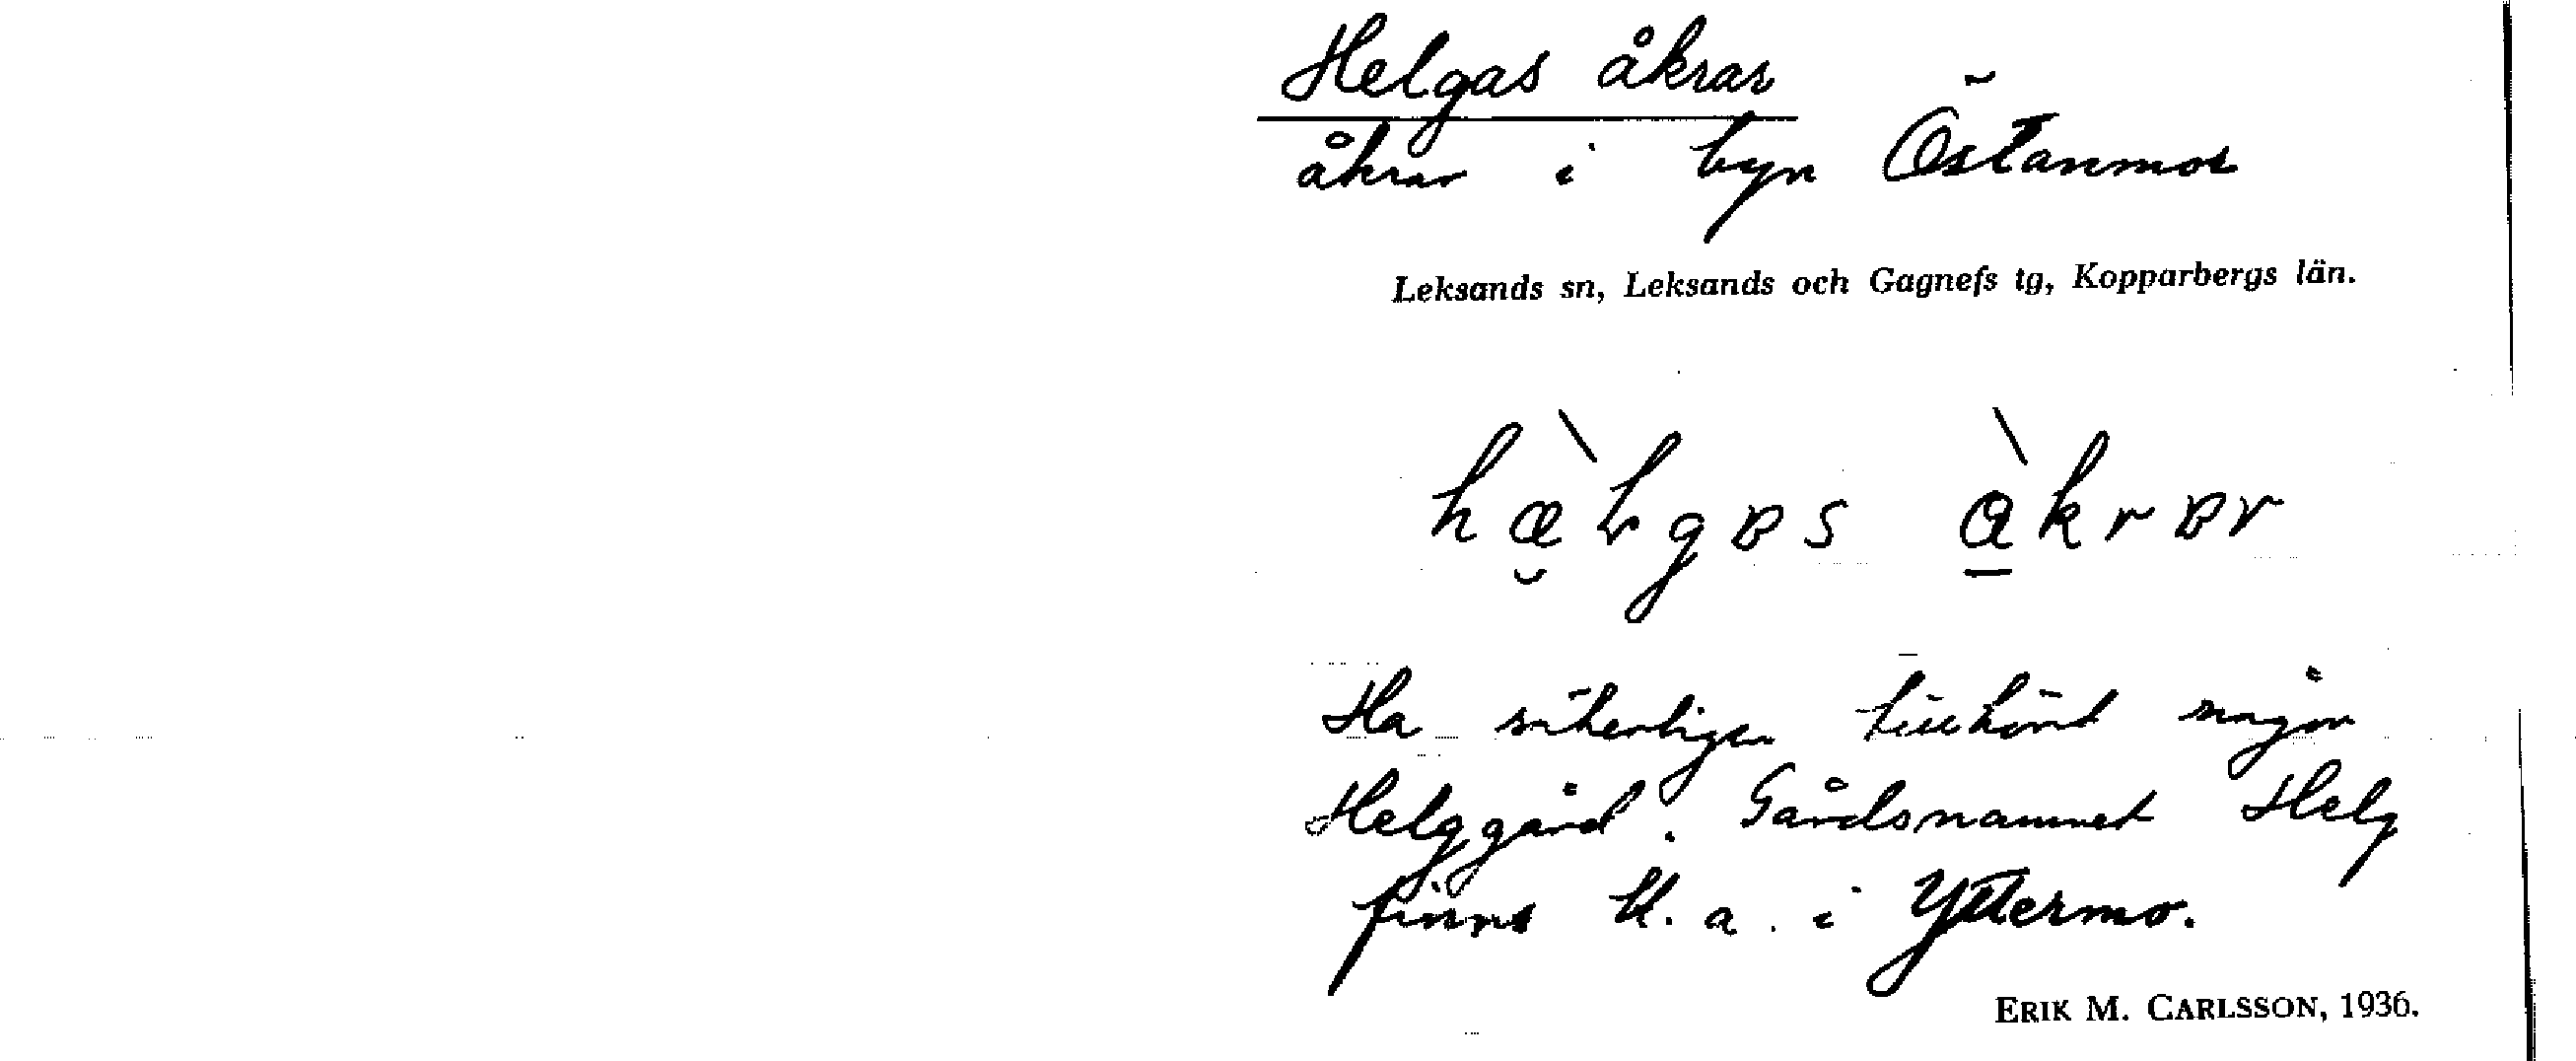 Helgas åkrar
åkrar i byn Östanmor
Leksands sn, Leksands och Gagnefs tg, Kopparbergs län.
Ha säkerligen tillhört någon
Helggård. Gårdsnamnet Helg
finns bl. a. i Yttermo.
ERIK M. CARLSSON, 1936.